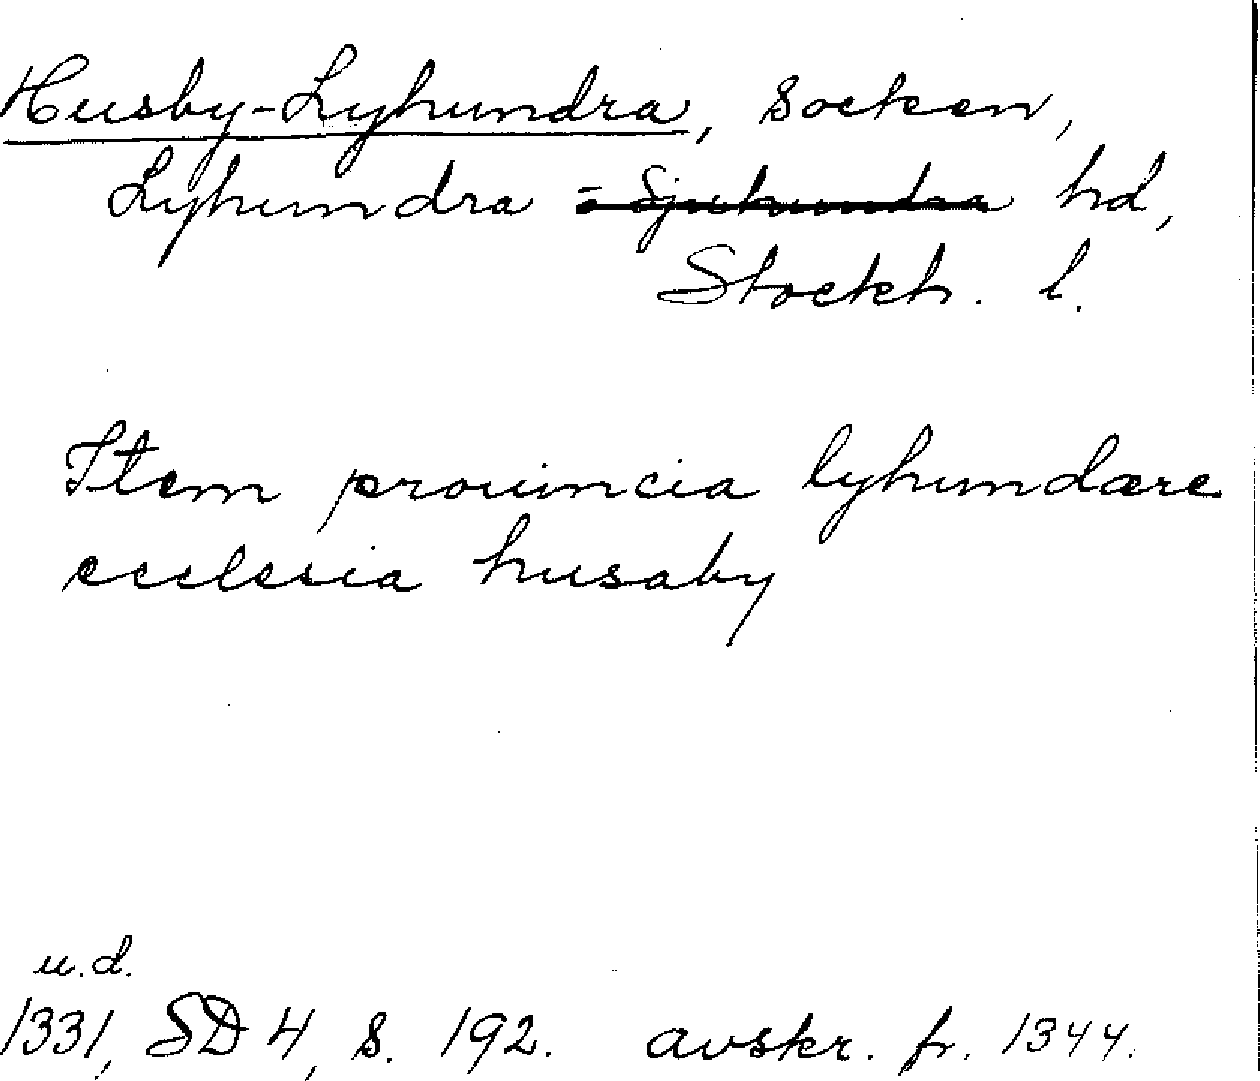 Husby-Lyhundra, socken,
Lyhundra o Sjuhundra hd,
Stockh. l.
Item prouincia lyhundære
ecclesia husaby
u.d.
1331, SD 4, s. 192. avskr. fr. 1344.